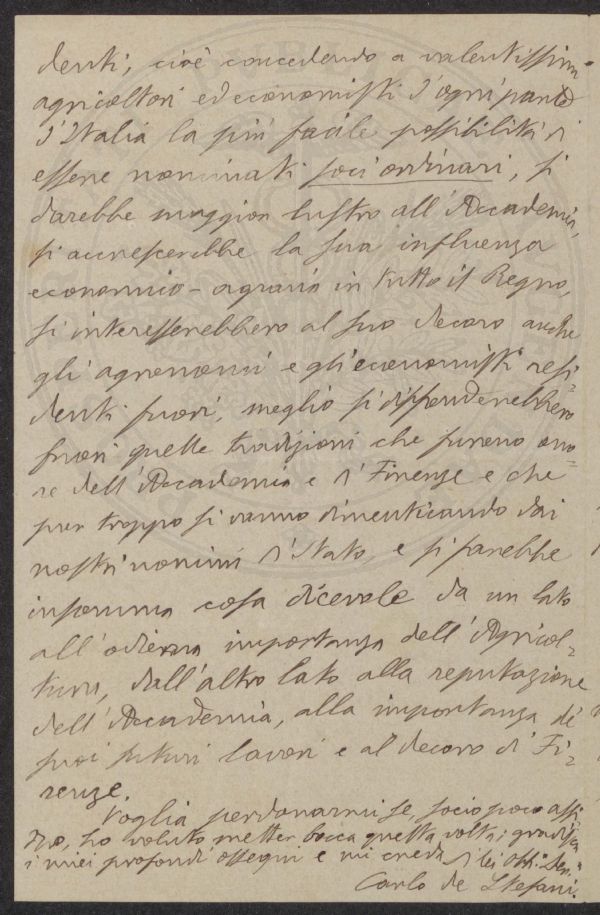 denti, cioè concedendo a valentissimi
agricoltori ed economisti d'ogni parte
d'Italia la più facile possibilità di
essere nominati soci ordinari, si
darebbe maggior lustro all'Accademia,
si accrescerebbe la sua influenza
economico-agraria in tutto il Regno,
si interesserebbero al suo decoro anche
gli agronomi e gli economisti resi=
denti fuori, meglio si diffonderebbero
fuori quelle tradizioni che furono ono=
re dell'Accademia e d'Firenze e che
pur troppo si vanno dimenticando dai
nostri uomini d'Stato, e si farebbe
insomma cosa dicevole da un lato
all'odierna importanza dell'Agricol=
tura, dall'altro lato alla reputazione
dell'Accademia, alla importanza de'
suoi futuri lavori e al decoro d'Fi=
renze.
Voglia perdonarmi se, socio poco assi
duo, ho voluto metter bocca questa volta; gradisca
i miei profondi ossequi e mi creda di lei
Carlo de Stefani.